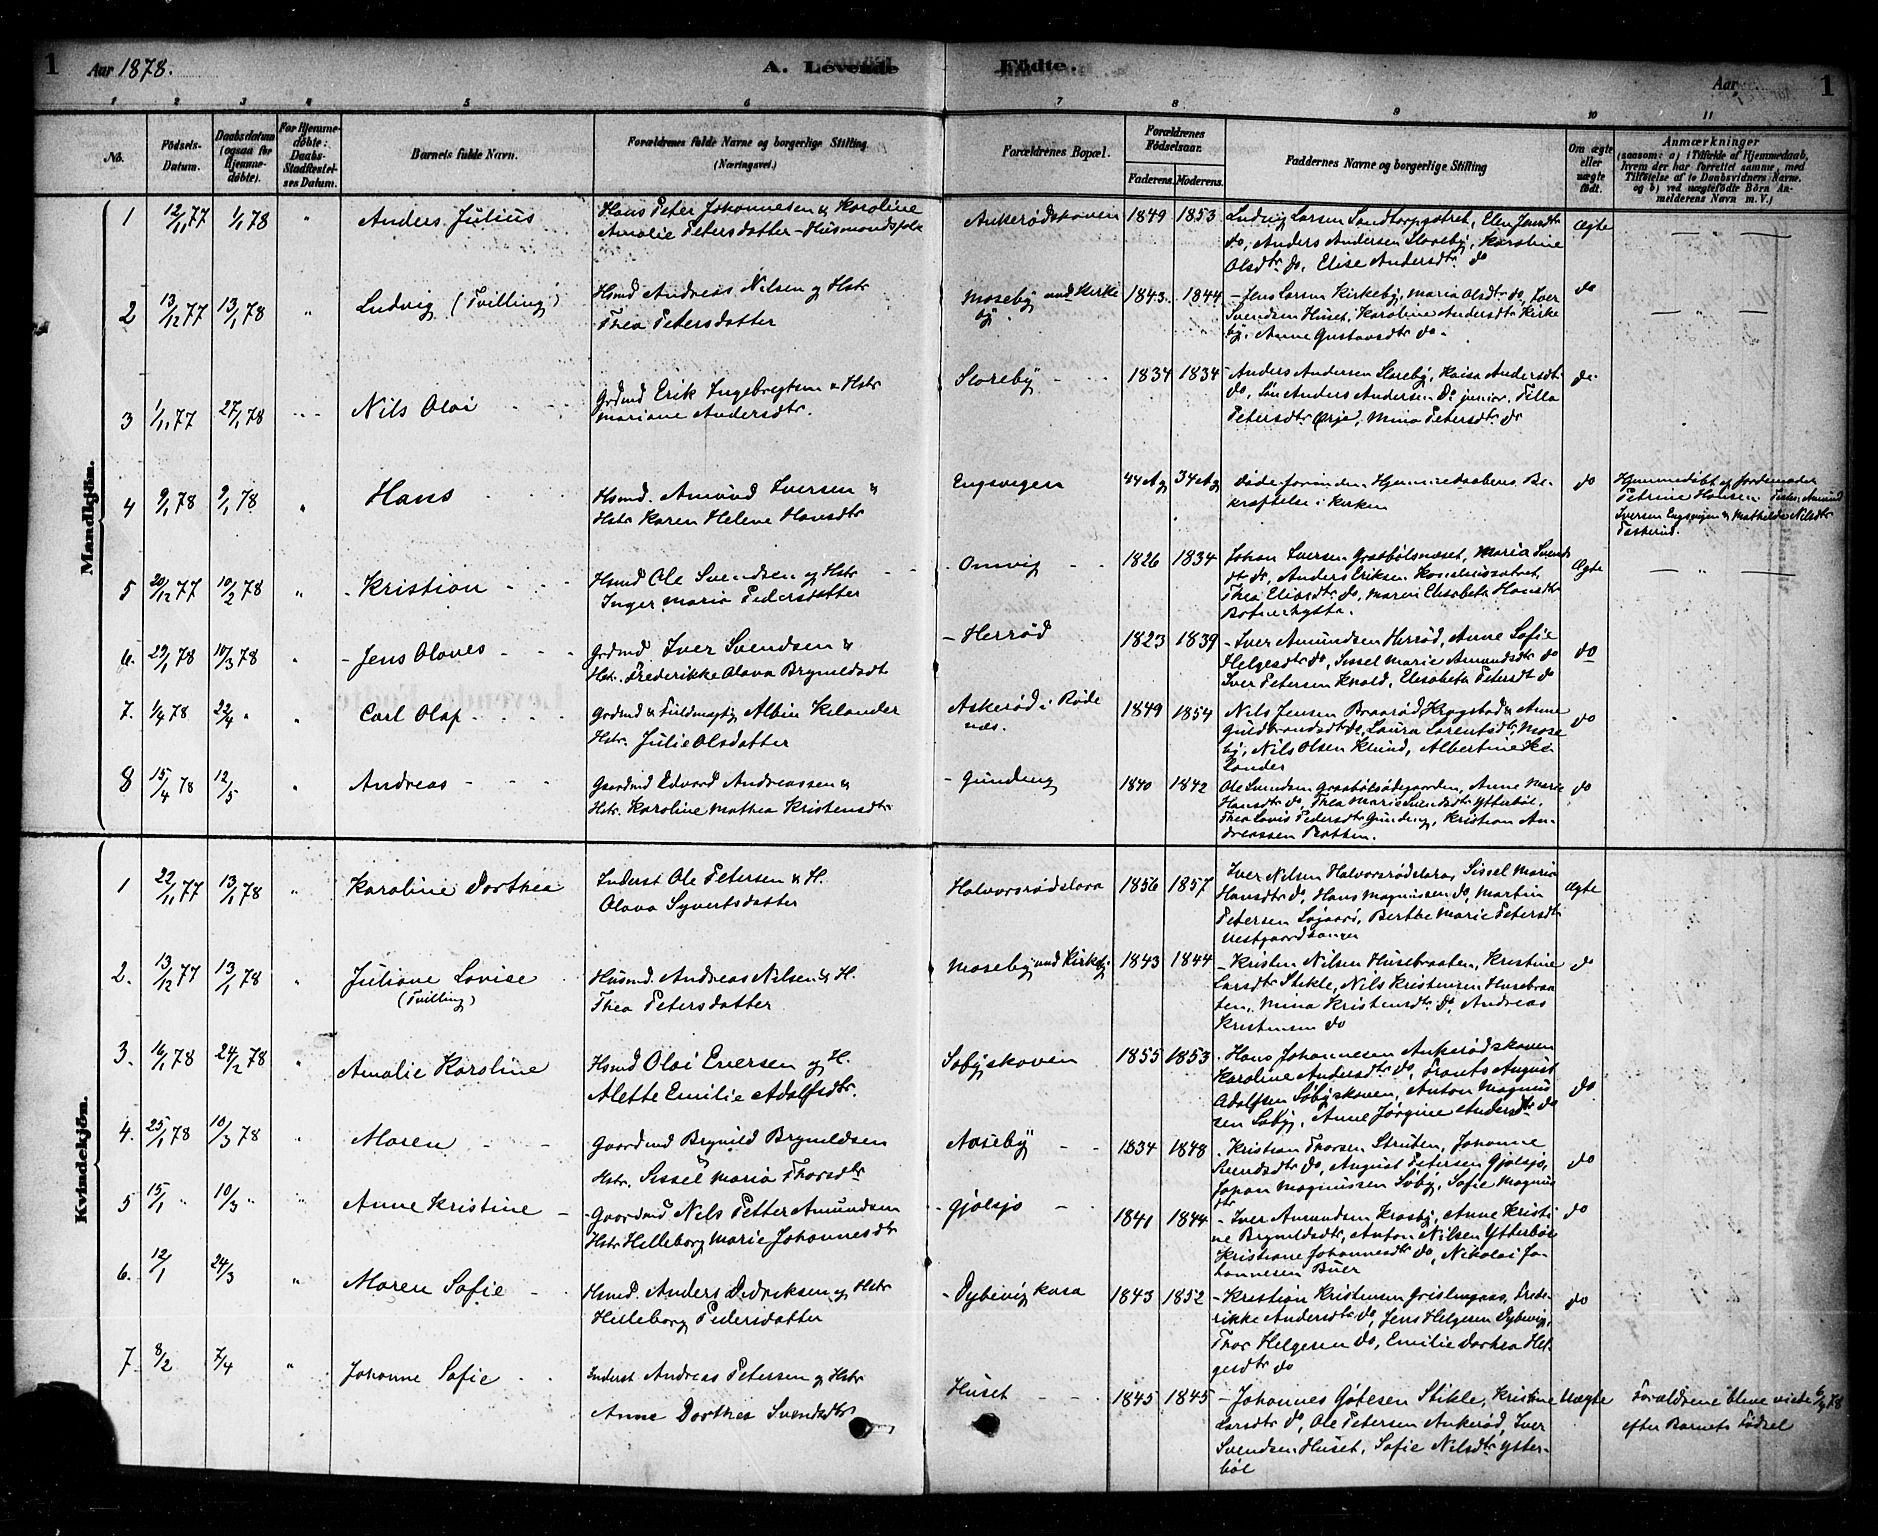 1 Aar 1878. A. Levende Födte. Aar 1
1 2 3 4 5 6 7 8 9 10 11
No.
Födsels-Datum.
Daabsdatum (ogsaa for Hjemme-döbte).
For Hjemme-döbte: Daabs-Stadfæstel-ses Datum.
Barnets fulde Navn.
Forældrenes fulde Navne og borgerlige Stilling (Næringsvei.)
Forældrenes Bopæl.
Forældrenes Födselsaar.
Faderens. Moderens.
Faddernes Navne og borgerlige Stilling
Om ægte eller uægte födt.
Anmærkninger
(saasom: a) i Tilfælde af Hjemmedaab,
hvem der har forrettet samme, med
Tilföielse af to Daabsvidners Navne.
og b) ved uægtefödte Börn An-
melderens Navn m. V.)
Mandkjön.
1 12/11 77 1/1 78 " Anders Julius
Hans Peter Johannesen & Karoline
Amalie Petersdatter - Husmandsfolk
Ankerødskoven 1849 1853
Ludvig Larsen Sandtorpgatret, Elen Jensdtr
do, Anders Andersen Sloreby, Karoline
Olsdtr do, Elise Andersdtr do
Ægte
2 13/12 77 13/1 78 " Ludvig (Tvilling)
Hsmd Andreas Nilsen og Hstr
Thea Petersdatter
Moseby und Kirke
by. 1843. 1844
- Jens Larsen Kirkeby, Maria Olsdtr do, Iver
Svendsen Huset, Karoline Andersdtr Kirke
by, Anne Gustavsdtr do.
do
3 1/11 77 27/1 78 Nils Olai
Grdmd Erik Ingebregtsen & Hstr
Mariane Andersdtr.
Sloreby 1834 1834
- Anders Andersen Sloreby, Kaisa Andersdtr
do, Søn Anders Andersen Do junior, Tilla
Petersdtr Ørje, Mina Petersdtr do
do
4 9/1 78 9/1 78 " Hans
Hsmd. Amund Iversen &
Hstr Karen Helene Hansdtr
Engsvegen 44 Ag 34 Ag
Døde forinden Hjemmedaabens Be
kræftelse i Kirken
do
Hjemmedøbt af Jordemoder
Petrine Hansen. Amund
Iversen Engsvegen & Mathilde Nilsdtr
5 20/12 77 10/2 78 " - Kristian
Hsmd Ole Svendsen og Hstr
Inger Maria Pedersdatter
- Omvig 1826 1834
Johan Iversen Graabølsnæset, Maria Svends
dtr do, Anders Eriksen
Thea Eliasdtr do, Maren Elisabeth Hansdtr
Ægte
6. 29/1 78 10/3 78 " - Jens Olaves
Grdmd. Iver Svendsen &
Hstr. Frederikke Olava Brynildsdt
- Herrød 1823 1839
- Iver Amundsen Herrød, Anne Sofie
Helgesdtr do, Sissel Marie Amundsdtr do
Iver Petersen Kvold, Elisabeth Petersdt do
do
7. 1/4 78 22/4 " " Carl Olaf
Grdmd & Fuldmægtig Albin Kelander
Hstr. Julie Olsdatter
Askerød i Røde
næs. 1849 1854
Nils Jensen Braarød Krogstad & Anne
Guldbrandsdtr do, Laura Larentsdtr, Mose
by, Nils Olsen Kvind, Albertine Ke-
lander
do
8 15/4 78 12/5 " Andreas
Gaardmd Edvard Andreassen &
Hstr. Karoline Mathea Kristensdtr
- Gundeng 1840 1842
Ole Svendsen Graabølsødegaarden, Anne Marie
Hansdtr do, Thea Marie Svendsdtr Ytterbøl,
Thea Lovis Pedersdtr Gundeng, Kristian An-
dreassen
do
Kvindekjön.
1 22/11 77 13/1 78 " Karoline Dorthea
Inderst Ole Petersen & H.
Olava Syvertsdatter
Halvorsrødslora 1856 1857
Iver Nilsen Halvorsrødslora, Sissel Maria
Hansdtr do, Hans Magnussen do, Martin
Petersen, Berthe Marie Petersdtr
Ægte
2. 13/12 77 13/1 78 " Juliane Lovise
(Tvilling)
Husmd. Andreas Nilsen & H.
Thea Petersdatter
Moseby und Kirkeby 1843 1844
- Kristen Nilsen Husebraaten, Kristine
Larsdtr Stikle, Nils Kristensen Husebraa
ten, Mina Kristensdtr. Do, Andreas
Kristensen do
do
3. 16/1 78 24/2 78 " Amalie Karoline
Hsmd Olai Eversen og H.
Alette Emilie Adolfsdtr.
Søbyskoven 1855 1853
Hans Johannesen Ankerødskoven
Karoline Andersdtr do, Frants August
Adolfsen Søbyskoven, Anton Magnus
sen Søby, Anne Jørgine Andersdtr do
do
4. 25/1 78 10/3 78 " Maren
Gaardmd Brynild Brynildsen
Hstr. Sissel Maria Thorsdtr
Aaseby 1834 1848
- Kristian Thorsen Struten, Johanne
Svendsdtr do, August Petersen Gjølsjø,
Johan Magnussen Søby, Sofie Magnus
dtr
do
5 15/1 " 10/3 " " Anne Kristine
- Gaardmd Nils Petter Amundsen
Hstr Helleborg Marie Johannesdtr
- Gjølsjø 1841 1844
- Iver Amundsen Krosby, Anne Kristi-
ne Brynildsdtr, Anton Nilsen Ytterbøl
Kristiane Johannesdtr do, Nikolai Jo-
hannesen Buer
do
6. 12/1 24/3 " Maren Sofie
Hsmd. Anders Didriksen og Hstr
Helleborg Pedersdatter
- Dybevigkasa 1843 1852
- Kristian Kristensen, Frede-
rikke Andersdtr do, Jens Helgesen Dybevig,
Thor Helgesen do, Emilie Dorthea Hel
gesdtr do
do
7. 8/2 7/4 " Johanne Sofie
Inderst Andreas Petersen og Hstr
Anne Dorthea Svendsdtr
Huset 1845 1845
- Johannes Gøtesen Stikle, Kristine
Larsdtr do, Ole Petersen Ankerød, Iver
Svendsen Huset, Sofie Nilsdtr Ytter-
bøl
Uægte
Forældrene bleve viede 6/4 78
efter Barnets Fødsel